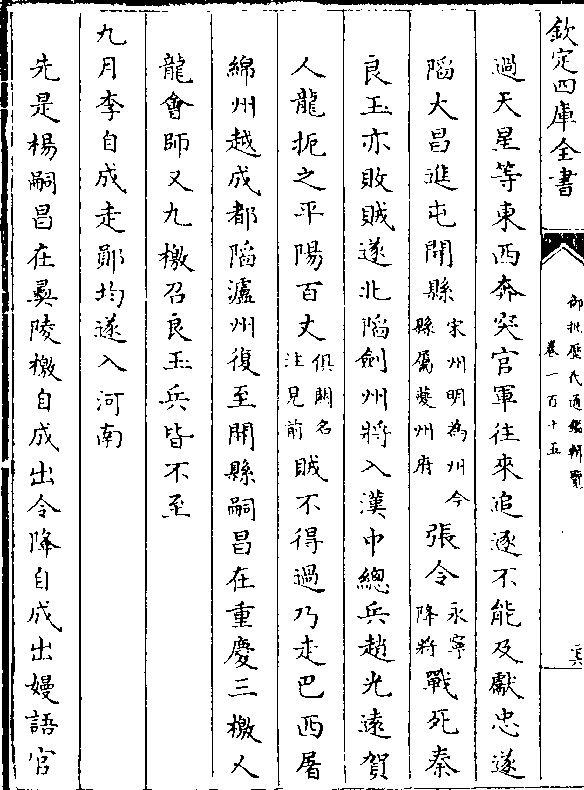 欽定四庫全書
御批歷代通鑑輯覽
卷一百十五
過天星等東西奔突官軍往來追逐不能及獻忠遂
陷大昌進屯開縣宋州明為州今縣屬夔州府張令永寧降將戰死秦
良玉亦敗賊遂北陷劍州將入漢中總兵趙光遠賀
人龍扼之平陽百丈俱關名注見前賊不得過乃走巴西屠
綿州越成都陷瀘州復至開縣嗣昌在重慶三檄人
龍會師又九檄召良玉兵皆不至
九月李自成走鄖均遂入河南
先是楊嗣昌在彞陵檄自成出令降自成出嫚語官